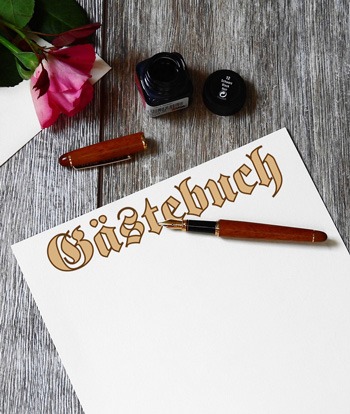 Gästebuch